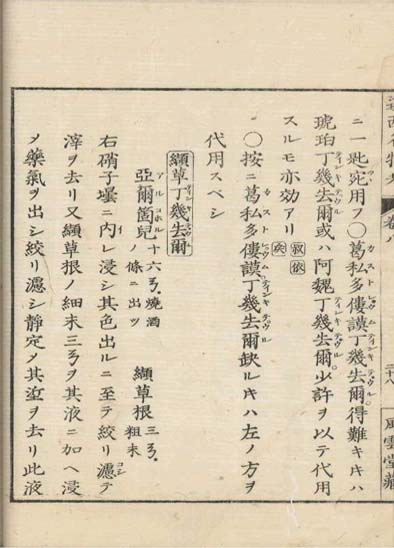 遠西名物考
卷八
三十八
風雲堂藏
ニ一匙宛用フ〇葛私多僂謨丁幾去爾得難キ𪜈ハ
琥珀丁幾去爾或ハ阿魏丁幾去爾少許ヲ以テ代用
スルモ亦効アリ
〇按ニ葛私多僂謨丁幾去爾缺ル𪜈ハ左ノ方ヲ
代用スベシ
纈草丁幾去爾
亞爾箇兒十六ヲ燒酒ノ條ニ出ツ 纈草根三ヲ粗末
右硝子壜ニ内レ浸シ其色出ルニ至テ絞リ濾テ
滓ヲ去リ又纈草根ノ細末三ヲヲ其液ニ加ヘ浸
メ藥氣ヲ出シ絞リ濾シ靜定メ其澱ヲ去リ此液